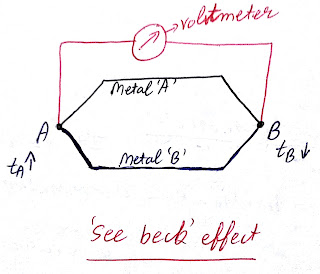 voltmeter
Metal 'A'
A
B
tA↑
tB↓
Metal 'B'
'See beck' effect